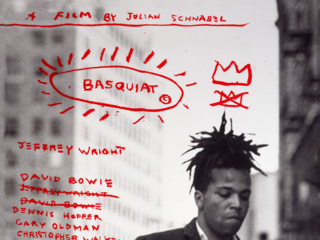 A FILM BY JULIAN SCHNABEL
BASQUIAT ©
JEFFREY WRIGHT
DAVID BOWIE
JEFFREY WRIGHT
DAVID BOWIE
DENNIS HOPPER
GARY OLDMAN
CHRISTOPHER WALKEN